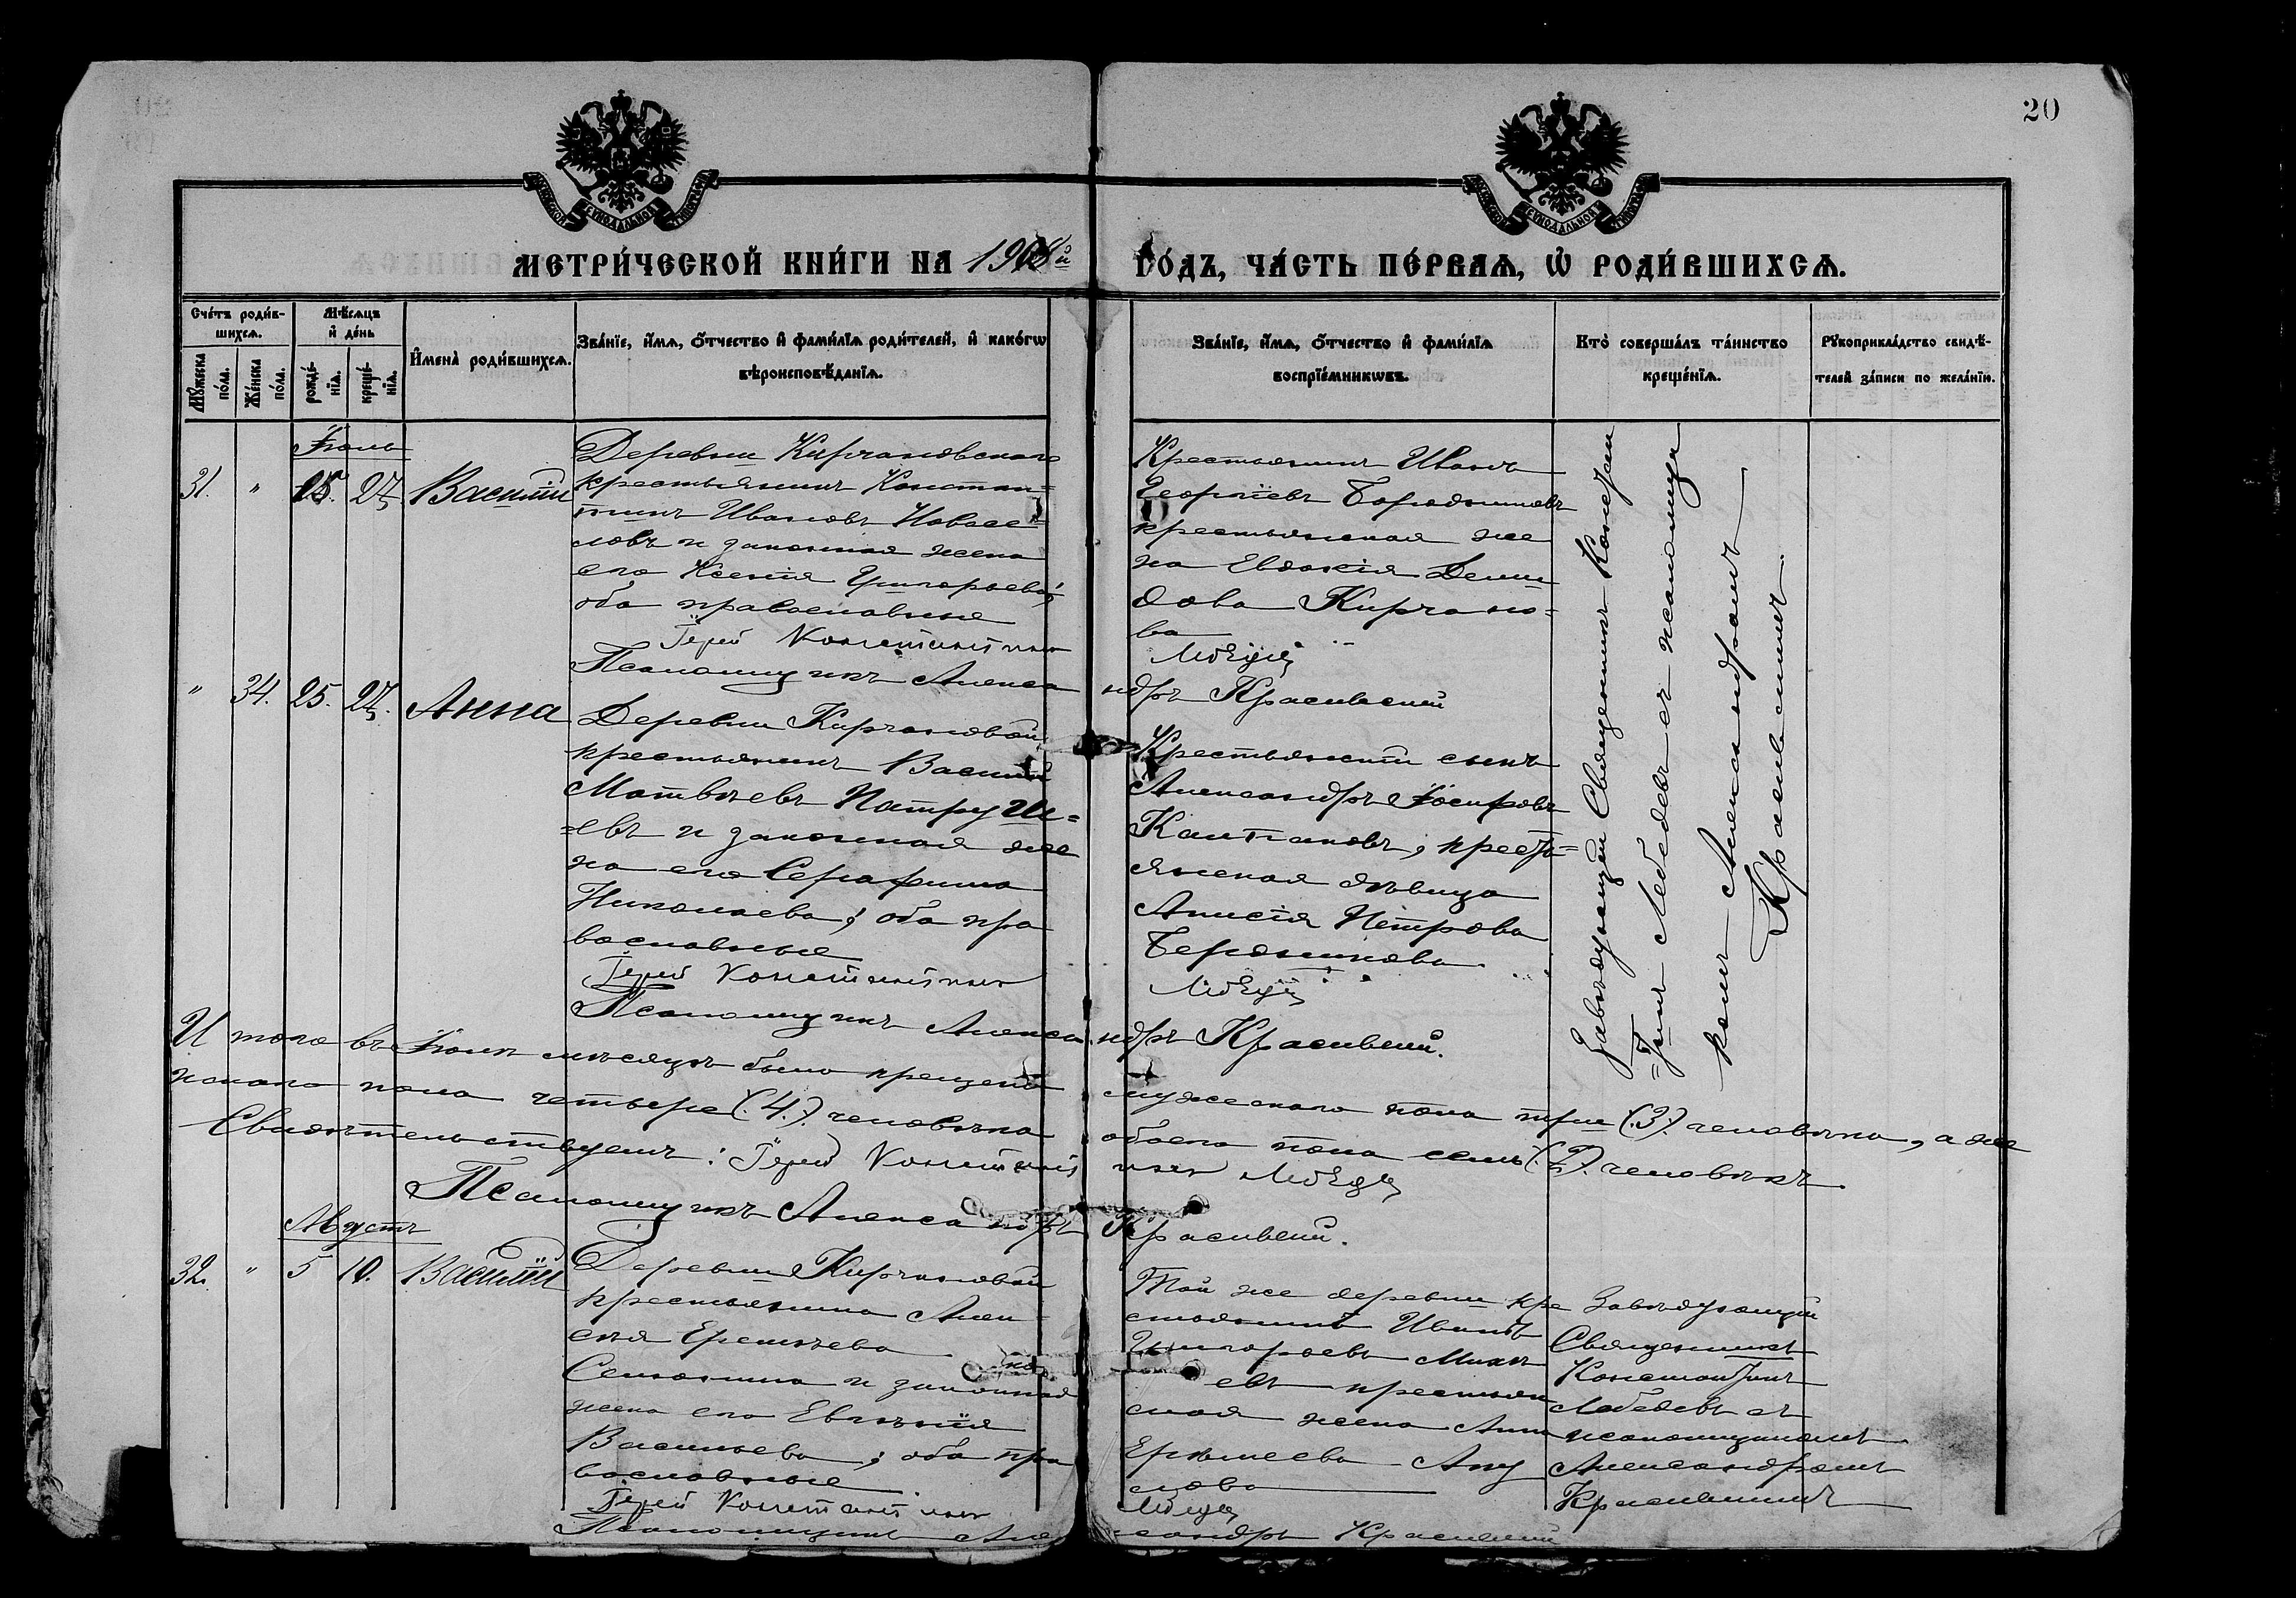 20
МОСКОВСКОЙ СѴНОДАЛЬНОЙ ТИПОГРАФІИ
МОСКОВСКОЙ СѴНОДАЛЬНОЙ ТИПОГРАФІИ
МЕТРИ́ЧЕСКОЙ КНИ́ГИ НА 1908й
ГО́ДЪ, ЧА́СТЬ ПЕ́РВАѦ, Ѡ҆ РОДИ́ВШИХСѦ.
Сче́тъ роди́в-
шихсѧ.
Мꙋ́жеска по́ла.
Же́нска по́ла.
Мѣ́сѧцъ
и҆ де́нь
рожде́-
нїѧ.
креще́-
нїѧ.
И҆мена̀ роди́вшихсѧ.
Зва́нїе, и҆́мѧ, ѻ҆́тчество и҆ фами́лїѧ роди́телей, и҆ како́гѡ
вѣроисповѣ́данїѧ.
Зва́нїе, и҆́мѧ, ѻ҆́тчество и҆ фами́лїѧ
воспрїе́мникѡвъ.
Кто̀ соверша́лъ та́инство
креще́нїѧ.
Рꙋкоприкла́дство свидѣ́-
телей за́писи по жела́нїю.
Іюль
31. " 25. 27. Василій
Деревни Кирчановской
крестьянинъ Констан=
тинъ Ивановъ Новосе=
ловъ и законная жена
его Ксенія Григорьева;
оба православные
Іерей Константинъ
Псаломщикъ Алекса
Крестьянинъ Иванъ
Георгіевъ
крестьянская же
на Евдокія Деми
дова Кирчано=
ва
Лебедев
ндръ Красивскій
Завѣдующій Священникъ Констан
=тинъ Лебедевъ съ псаломщи
комъ Александромъ
Красивскимъ.
" 34. 25. 27. Анна
Деревни Кирчановой
крестьянинъ Василій
Матвѣевъ Патруш=
=евъ и законная же
на его Серафима
Николаева; оба пра
вославные
Іерей Константинъ
Псаломщикъ Алекса
Крестьянскій сынъ
Александръ Іосифовъ
крестьянская дѣвица
Анисія Петрова
Лебедев
ндръ Красивскій.
Итого въ Іюлѣ мѣсяцѣ было крещено мужескаго пола три (.3.) человѣка, а же
нскаго пола четыре (.4.) человѣка обоего пола семь (.7.) человѣкъ.
Свидѣтельствуемъ: Іерей Константинъ Лебедев
Псаломщикъ Александръ Красивскій.
Августъ
32. " 5 10. Василій
Деревни Кирчановой
крестьянина Алек
сѣя
Сенюшина и законная
жена его Евгенія
Васильева; оба пра
вославные
Іерей Константинъ
Псаломщикъ Алек
Той же деревни кре
стьянинъ Иванъ
Григорьевъ Михѣ
евъ крестьян
ская жена Анна
Еремеева
Лебедев
сандръ Красивскій
Завѣдующій
Священникъ
Константинъ
Лебедевъ съ
псаломщикомъ
Александромъ
Красивскимъ